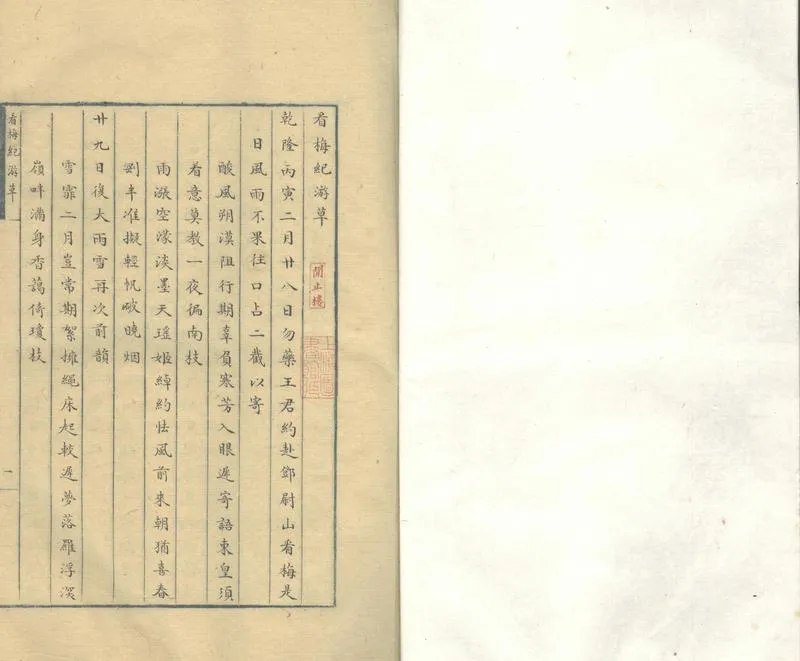 看梅紀游草
乾隆丙寅二月廿八日勿藥王君約赴鄧尉山看梅是
日風雨不果往口占二截以寄
酸風朔漠阻行期辜負寒芳入眼遲寄語東皇須
着意莫教一夜徧南枝
雨漲空濛淡墨天瑤姬綽約怯風前來朝猶喜春
剛半准擬輕帆破曉烟
廿九日復大雨雪再次前韻
雪霏二月豈常期絮擁繩床起較遲夢落羅浮深
嶺畔滿身香靄倚瓊枝
看梅紀游草
一
止樓